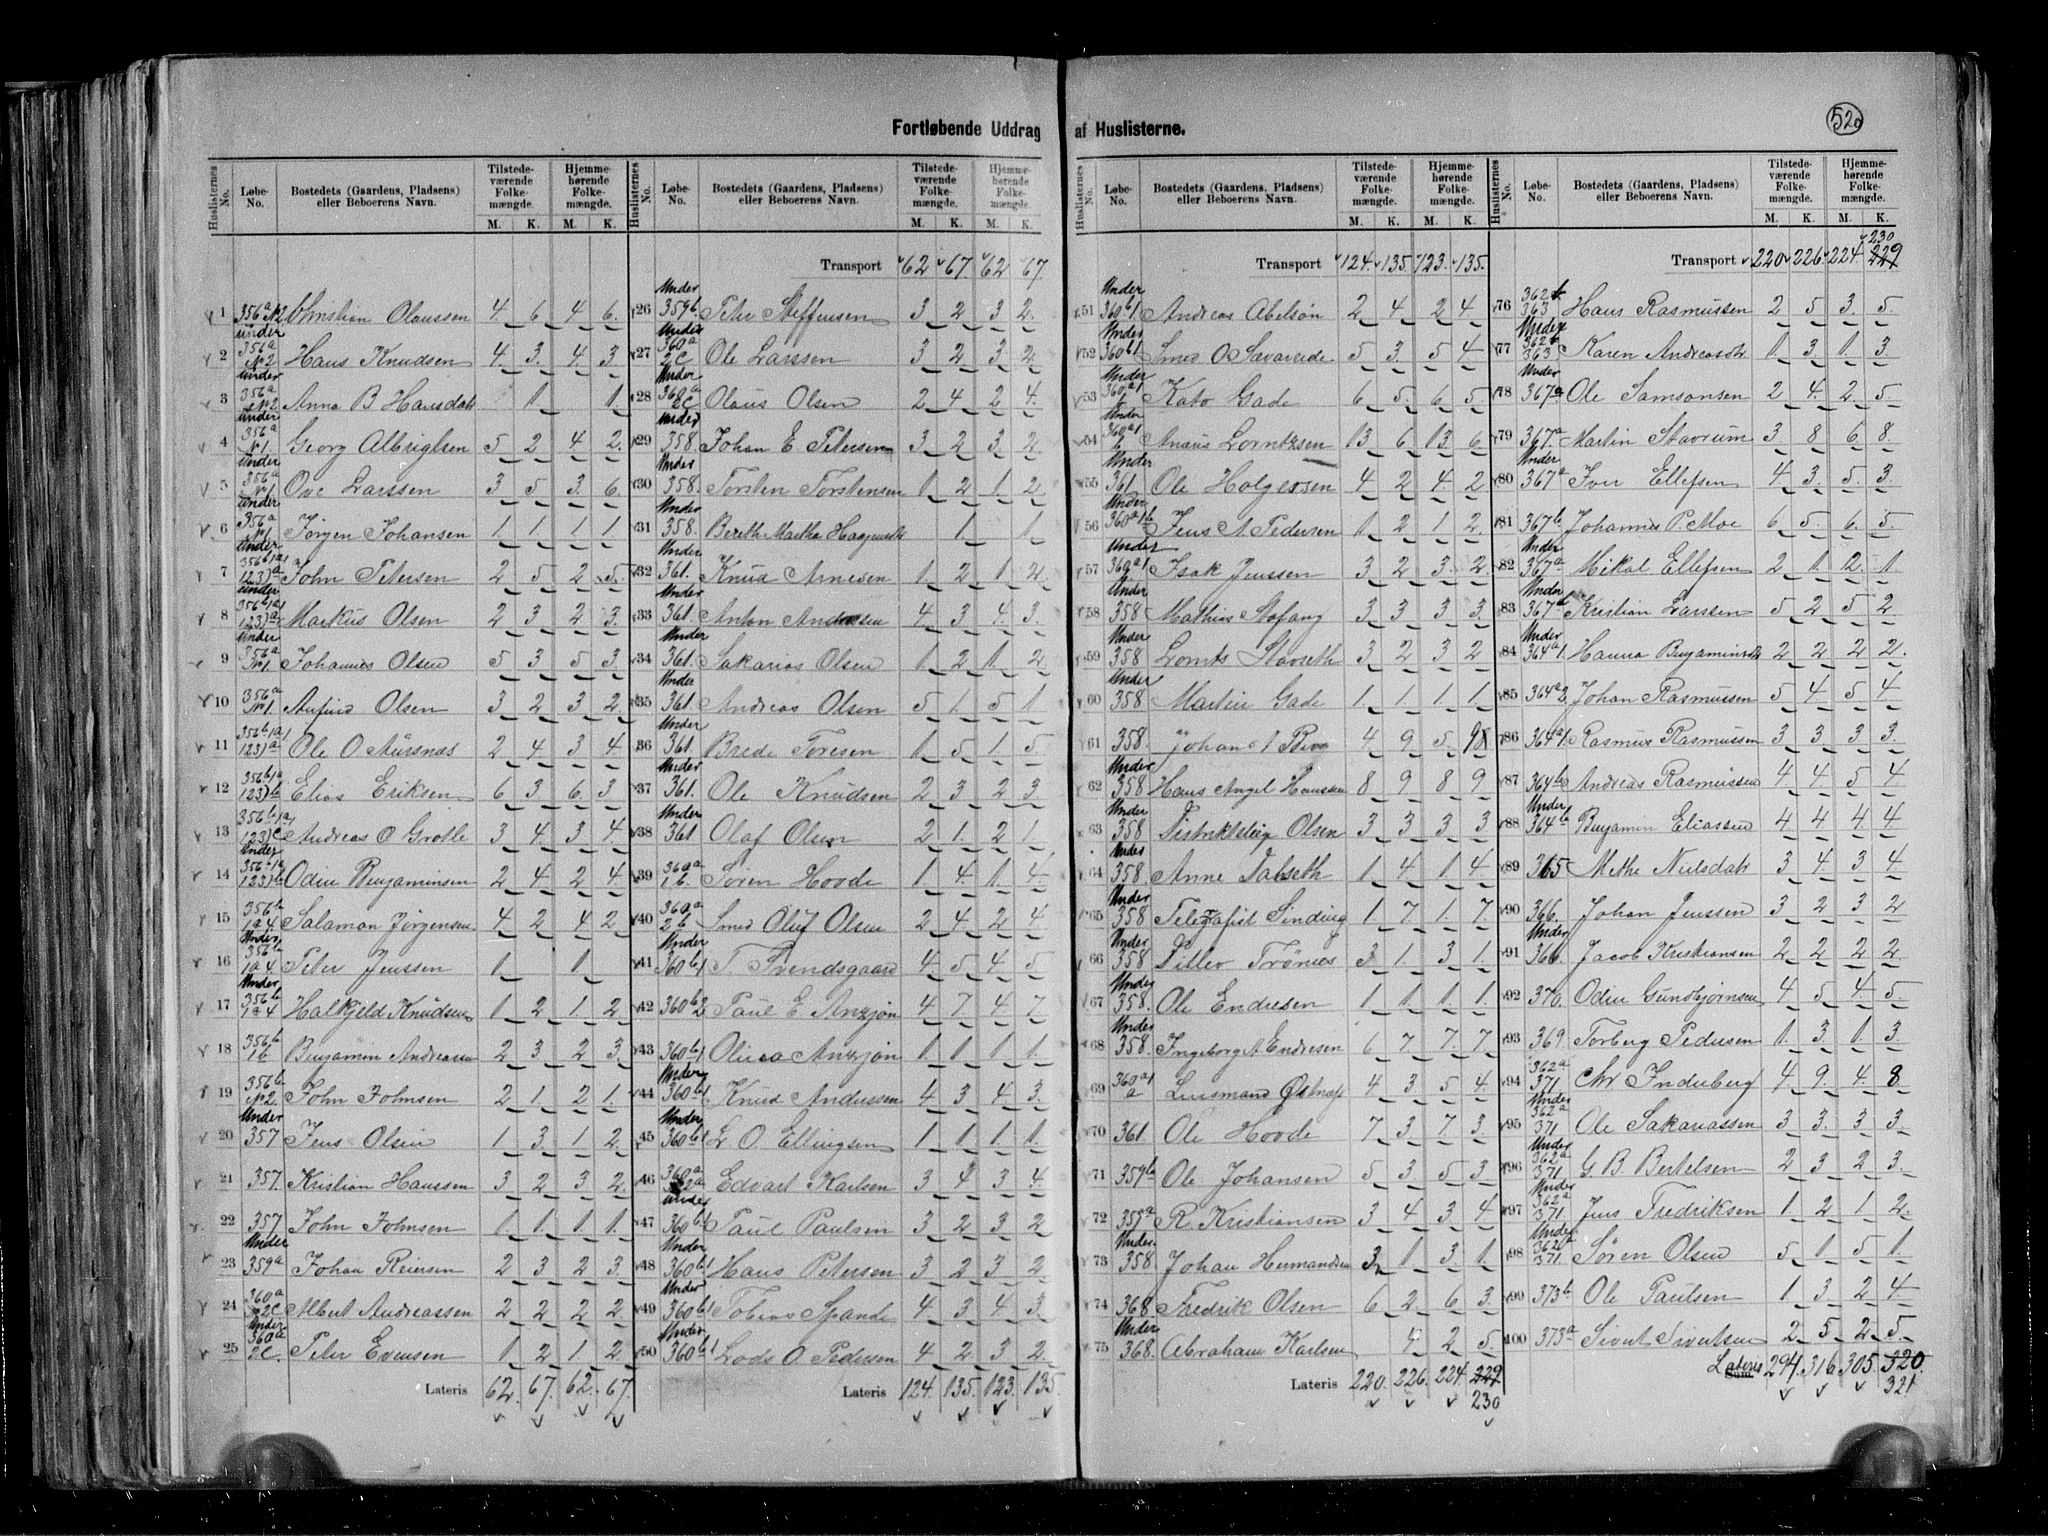 Fortløbende Uddrag af Huslisterne.
52a
Huslisternes No. Løbe-No. Bostedets (Gaardens, Pladsens) eller Beboerens Navn. Tilstedeværende Folkemængde. M. K. Hjemmehørende Folkemængde. M. K.
1 356a №2 Christian Olaussen 4 6 4 6
2 under 356a №2 Hans Knudsen 4 3 4 3
3 under 356a №2 Anna B Hansdatr 1 1
4 under 356a №1 Georg Albrigtsen 5 2 4 2
5 under 356a №1 Ove Larssen 3 5 3 6
6 under 356a №1 Jørgen Johansen 1 1 1 1
7 under 356b 1a1 123)a John Petersen 2 5 2 5
8 under 356b 1a1 123)a Markus Olsen 2 3 2 3
9 under 356a №1 Johannes Olsen 5 3 5 3
10 356a №1 Olsen 3 2 3 2
11 356b 1a1 123)a Ole O Aursnæs 2 4 3 4
12 356b 1a 123)b Elias Eriksen 6 3 6 3
13 356b 1a1 123)c Andreas O Grotle 3 4 3 4
14 under 356b 1a 123)b Odin Benjaminsen 2 4 2 4
15 356b 1a4 Salamon Jørgensen 4 2 4 2
16 Under 356b 1a4 Peter Jenssen 1 1
17 Under 356b 1a4 Halkjeld Knudsen 1 2 1 2
18 356b 1b Benjamin Andreasen 2 3 2 3
19 356b №2 John Johnsen 2 1 2 1
20 Under 357 Jens Olsen 1 3 1 2
21 357 Kristian Hanssen 3 2 3 2
22 357 John Johnsen 1 1 1 1
23 Under 359a Johan Reiersen 2 3 2 3
24 360a 2c Albert Andreassen 2 2 2 2
25 Under 360a 2c Peter Evensen 1 2 1 2
Lateris 62 67 62 67
Huslisternes No. Løbe-No. Bostedets (Gaardens, Pladsens) eller Beboerens Navn. Tilstedeværende Folkemængde. M. K. Hjemmehørende Folkemængde. M. K.
Transport 62 67 62 67
26 Under 359b Peter Steffensen 3 2 3 2
27 Under 360a 2c Ole Larssen 3 2 3 2
28 Under 360a 2c Olaus Olsen 2 4 2 4
29 Under 358 Johan E Petersen 3 2 3 2
30 Under 358 Torsten Torstensen 1 2 1 2
31 Under 358 Bereth Martha 1 1
32 Under 361 Knud Arnesen 1 2 1 2
33 Under 361 Anton Andersen 4 3 4 3
34 Under 361 Sakarias Olsen 1 2 1 2
35 Under 361 Andreas Olsen 5 1 5 1
36 Under 361 Brede Toresen 1 5 1 5
37 Under 361 Ole Knudsen 2 3 2 3
38 Under 361 Olaf Olsen 2 1 2 1
39 360a 1b Søren Hovde 1 4 1 4
40 360a 2b Smed Oluf Olsen 2 4 2 4
41 Under 360b1 T. Svendsgaard 4 5 4 5
42 360b2 Paul E. Anzjøn 4 7 4 7
43 360b1 Olivia Anzjøn 1 1 1 1
44 Under 360b1 Knud Anderssen 4 3 4 3
45 Under 360b1 L O. Ellingsen 1 1 1 1
46 360a 2a Edvart Karlsen 3 4 3 4
47 under 360b1 Paul Paulsen 3 2 3 2
48 Under 360b1 Hans Petersen 3 2 3 2
49 Under 360b1 Tobias Spande 4 3 4 3
50 Under 360b1 Lods O. Pedersen 4 2 3 2
Lateris 124 135 123 135
Huslisternes No. Løbe-No. Bostedets (Gaardens, Pladsens) eller Beboerens Navn. Tilstedeværende Folkemængde. M. K. Hjemmehørende Folkemængde. M. K.
Transport 124 135 123 135
51 Under 360b1 Andreas Abelson 2 4 2 4
52 Under 360b1 Smed O Savareide 5 3 5 4
53 Under 360a1 b Kato Gade 6 5 6 5
54 Under 360a1 b Anaus Lorntzsen 13 6 13 6
55 Under 361 Ole Holgersen 4 2 4 2
56 Under 360a1b Jens A. Pedersen 1 2 1 2
57 Under 360a1 Isak Jenssen 3 2 3 2
58 Under 358 Mathias Stofang 3 3 3 3
59 Under 358 Lornts Stavseth 3 2 3 2
60 Under 358 Martin Gade 1 1 1 1
61 358 Johan 4 9 5 98
62 Under 358 Hans Angel Hanssen 8 9 8 9
63 Under 358 Distriktslæg Olsen 3 3 3 3
64 Under 358 Anne Dalseth 1 4 1 4
65 Under 358 Telegrafist Sinding 1 7 1 7
66 Under 358 Ditlev Trønes 3 1 3 1
67 Under 358 Ole Endresen 1 1 1 1
68 Under 358 Ingeborg N. Endresen 6 7 7 7
69 360a1 a Østnes 4 3 5 4
70 361 Ole Hovde 7 3 7 3
71 359b Ole Johansen 5 3 5 3
72 359a R. Kristiansen 3 4 3 4
73 Under 358 Johan Hermandsen 3 1 3 1
74 368 Fredrik Olsen 6 2 6 3
75 Under 368 Abraham Karlsen 4 2 5
Lateris 220 226 224 229
230
Huslisternes No. Løbe-No. Bostedets (Gaardens, Pladsens) eller Beboerens Navn. Tilstedeværende Folkemængde. M. K. Hjemmehørende Folkemængde. M. K.
230
Transport 220 226 224 229
76 362b 363 Hans Rasmussen 2 5 3 5
77 Under 362b 363 Karen Andreasdtr 1 3 1 3
78 Under 367a Ole Samsonsen 2 4 2 5
79 367a Martin Stavrum 3 8 6 8
80 Under 367a Iver Ellefsen 4 3 5 3
81 367b Johannes P. Moe 6 5 6 5
82 Under 367a Mikal Ellefsen 2 1 2 1
83 Under 367b Kristian Larssen 5 2 5 2
84 Under 364a1 Hanna Benjaminsdtr 2 2 2 2
85 364a3 Johan Rasmussen 5 4 5 4
86 364a1 Rasmus Rasmussen 3 3 3 3
87 364b Andreas Rasmussen 4 4 5 4
88 Under 364b Benjamin Eliassen 4 4 4 4
89 365 Methe Nielsdatr 3 4 3 4
90 366 Johan Jenssen 3 2 3 2
91 Under 366 Jacob Kristiansen 2 2 2 2
92 370 Odin Gunbjørnsen 4 5 4 5
93 369 Torberg Pedersen 1 3 1 3
94 362a 371 Chr Inderberg 4 9 4 8
95 Under 362a 371 Ole Sakariassen 3 3 3 3
96 Under 362a 371 G B Bertelsen 2 3 2 3
97 Under 362a 371 Jens Fredriksen 1 2 1 2
98 Under 362a 371 Søren Olsen 5 1 5 1
99 373b Ole Paulsen 1 3 2 4
100 373a Sivert Sivertsen 2 5 2 5
Lateris Sum 294 316 305 320
321